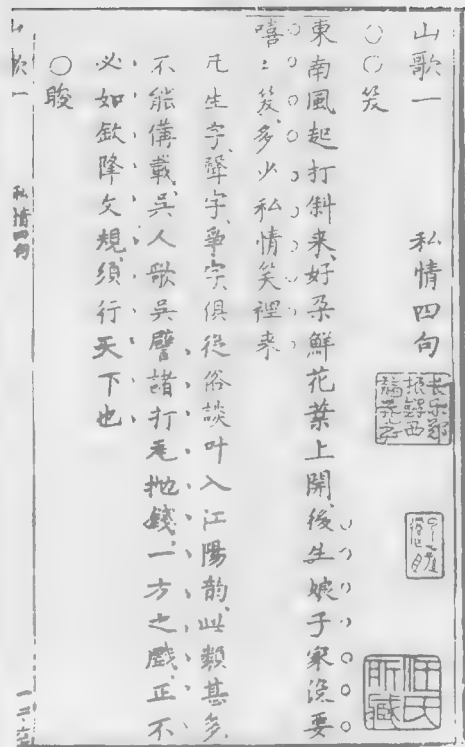 山歌一　私情四句
○○笶
東南風起打斜来、好朶鮮花葉上開、後生娘子家没要
嘻〻笶、多少私情笑裡来
凡生字、聲字、爭字、俱從俗談叶入江陽韵、此類甚多、
不能備載、吴人歌吴、譬諸打瓦抛錢、一方之戲、正不
必如欽降文規、須行天下也
○睃
山歌一　私情四句
長樂鄭振鐸西諦藏書
汪氏所藏